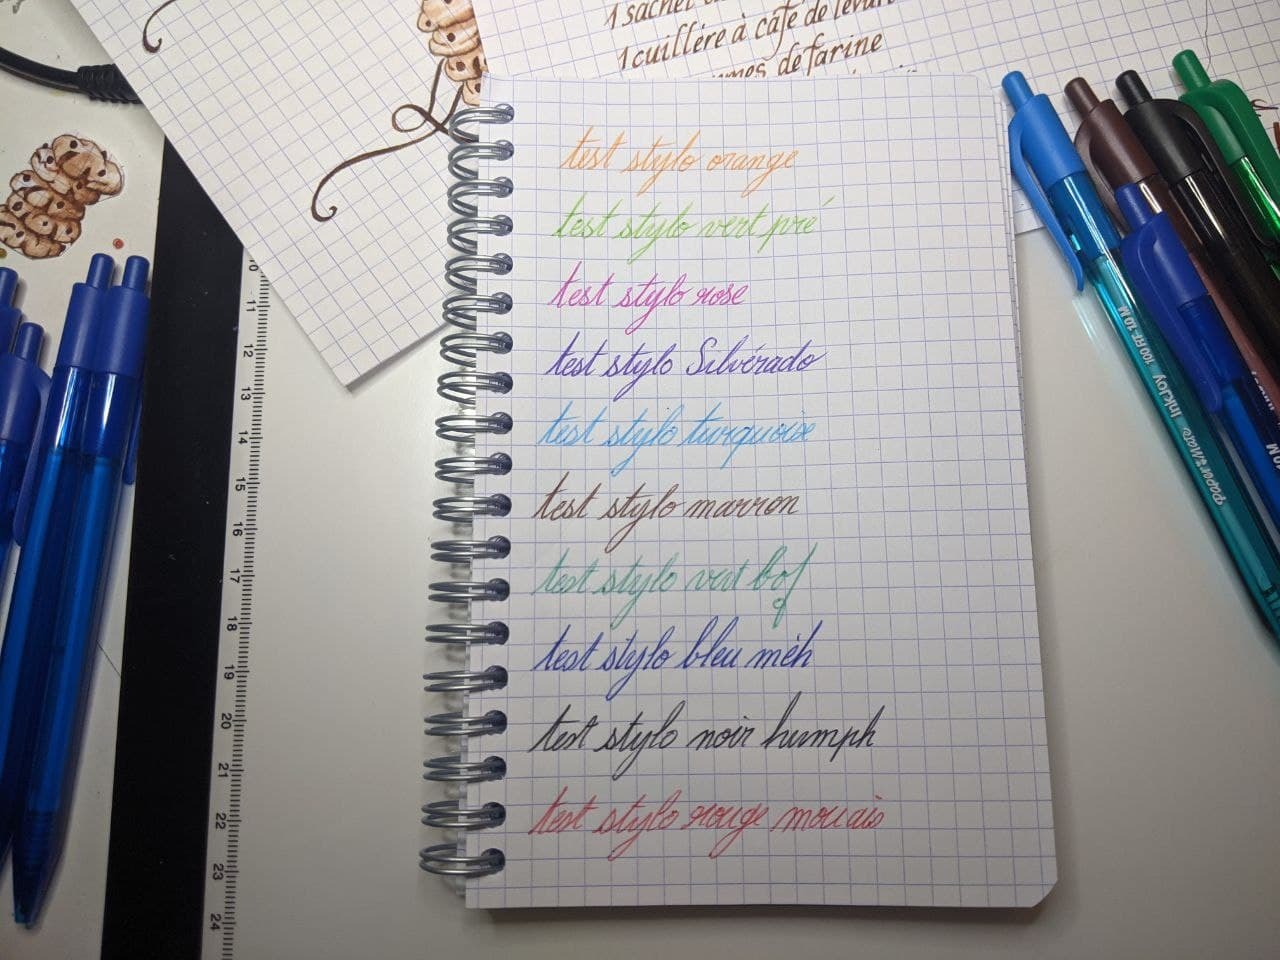 1 sachet
1 cuillère à café de levure
de farine
test stylo orange
test stylo vert pré
test stylo rose
test stylo Silvérado
test stylo turquoise
test stylo marron
test stylo vert bof
test stylo bleu mèh
test stylo noir humph
test stylo rouge mouais
10
11
12
13
14
15
16
17
18
19
20
21
22
23
24
Paper:Mate InkJoy 100RT 1.0M